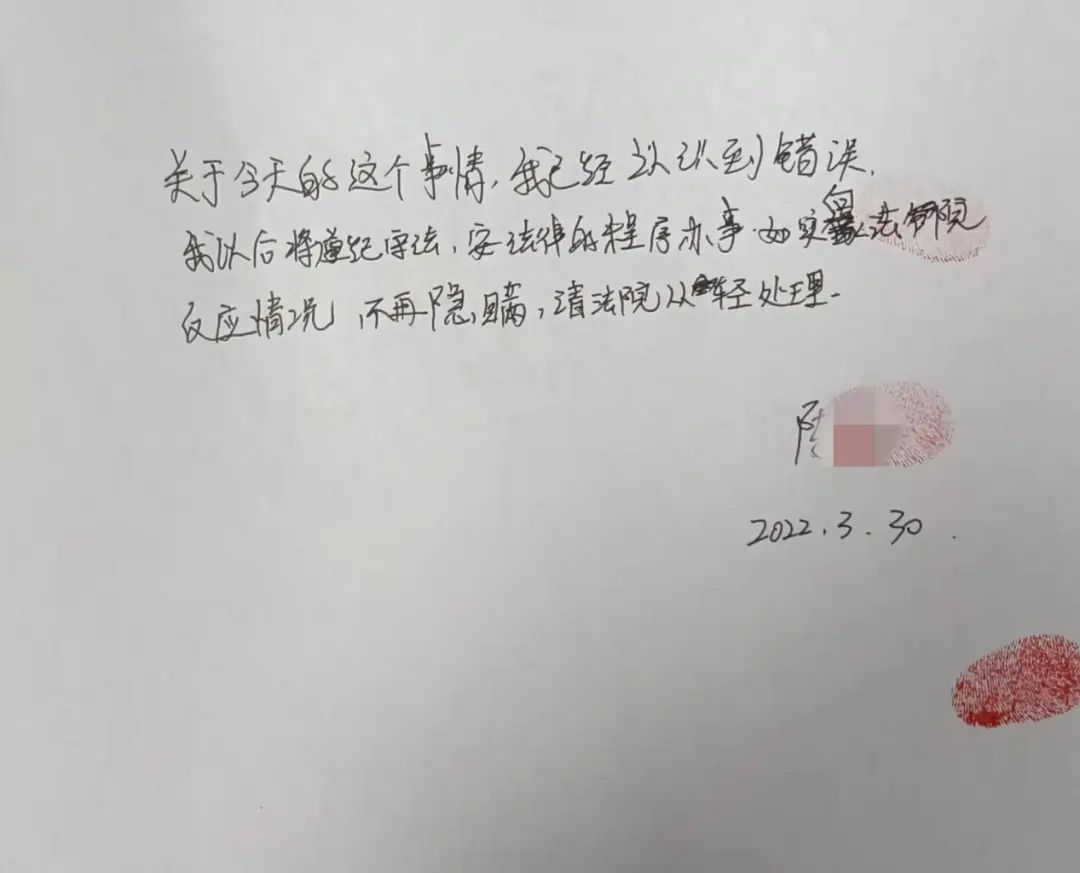 关于今天的这个事情，我已经认识到错误，
我以后将遵纪守法，安法律的程序办事 如实向法院
反应情况 不再隐瞒，请法院从轻处理.
陆
2022.3.30.